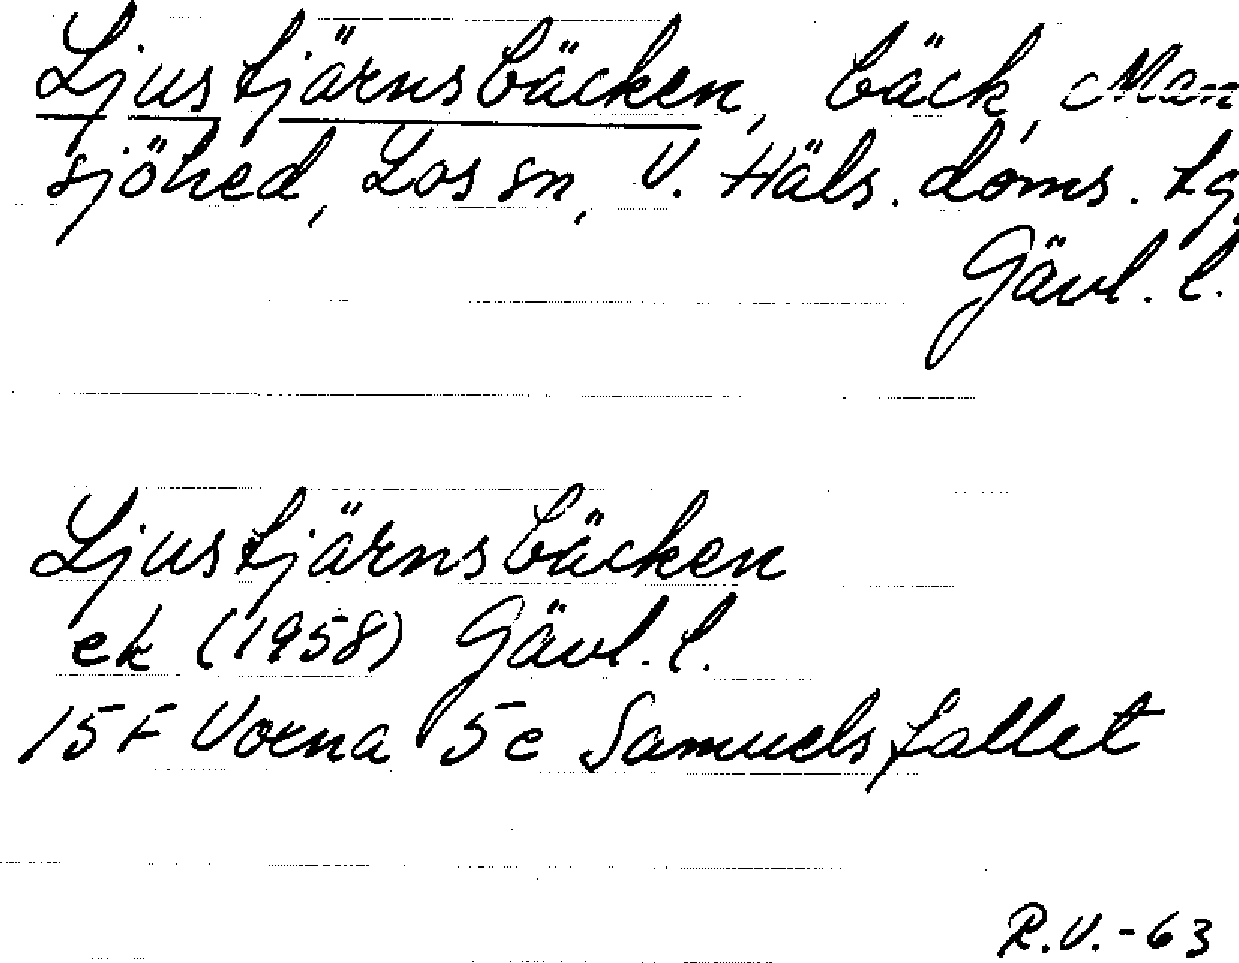 Ljustjärnsbäcken, bäck, Man
sjöhed, Los sn, V. Häls. doms. tg,
Gävl. l.
Ljustjärnsbäcken
ek (1958) Gävl. l.
15F Voxna 5e Samuelsfallet
R.V.-63